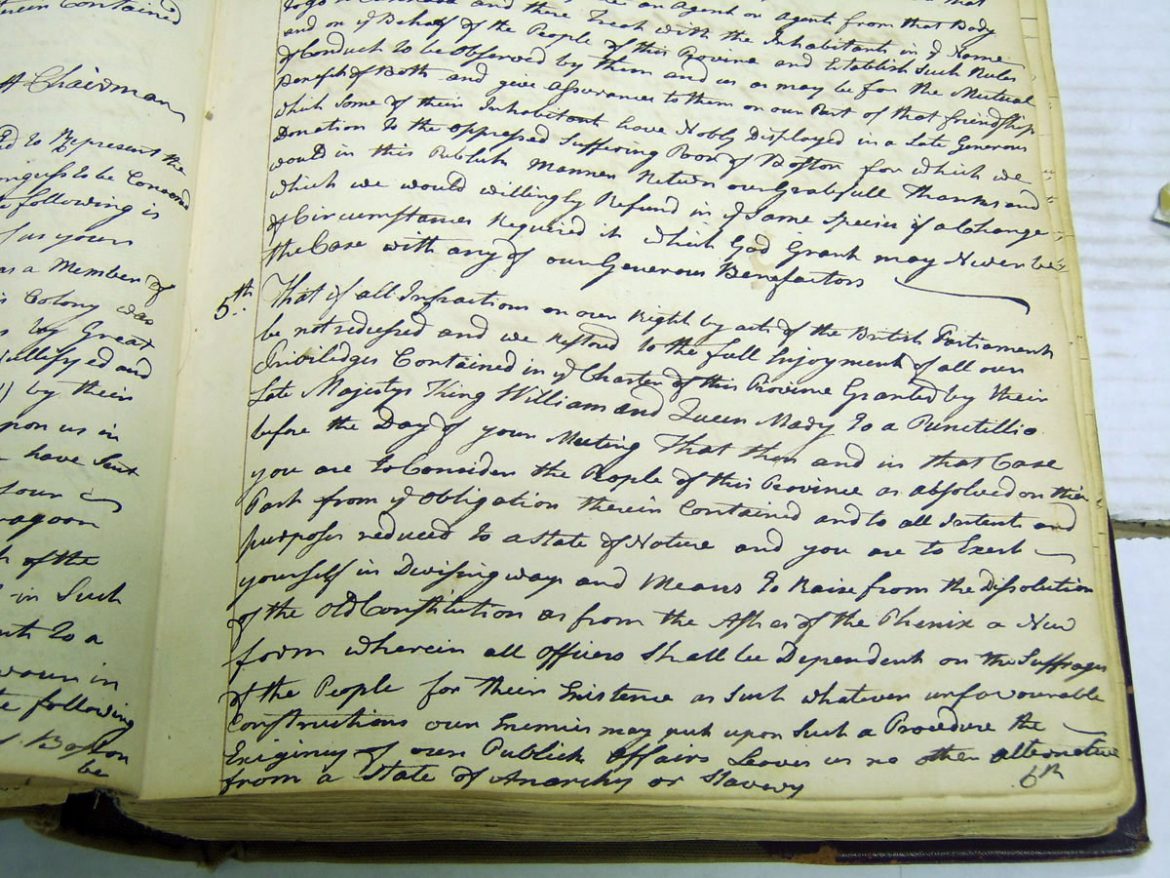 rein Contained
A Chairman
ed to Represent the
ongress to be Convened
following is
as yours
as a Member of
is Colony was
by Great
ullifyed and
by their
pon us in
have Sent
four
ragoon
h of the
in Such
nt to a
worn in
te following
Boston
be
to go to and there Treat with an Agent or Agents from that Body
and on y Behalf of the People of this Province with the Inhabitants in y Name
of Conduct to be Observed by them and us as may be for the Mutual
Benefit of Both and give Assurances to them on our Part of that friendship
which Some of their Inhabitant have Nobly Displayed in a Late Generous
Donation to the oppressed Suffering Poor of Boston for which we
would in this Publick Manner Return our Gratefull Thanks and
which we would willingly Refund in y Same Species if a Change
of Circumstances Required it which God Grant may Never be
the Case with any of our Generous Benefactors
5th That if all Infractions on our Right by acts of the British Parliament
be not redressed and we Restored to the full Enjoyment of all our
Priviledges Contained in y Charter of this Province Granted by their
Late Majestys King William and Queen Mary to a Punctillio
before the Day of your Meeting That then and in that Case
you are to Consider the People of this Province as absolved on their
Part from y obligation therein Contained and to all Intents and
purposes reduced to a State of Nature and you are to Exert
yourself in Devising ways and Means to Raise from the Dissolution
of the Old Constitution as from the Ashes of the Phenix a New
form wherein all officers Shall be Dependent on the Suffrages
of the People for their Existence as Such whatever unfavourable
Constructions our Enemies may put upon Such a Procedure the
Exigency of our Publick Affairs Leaves us no other alternative
from a State of Anarchy or Slavery
6th